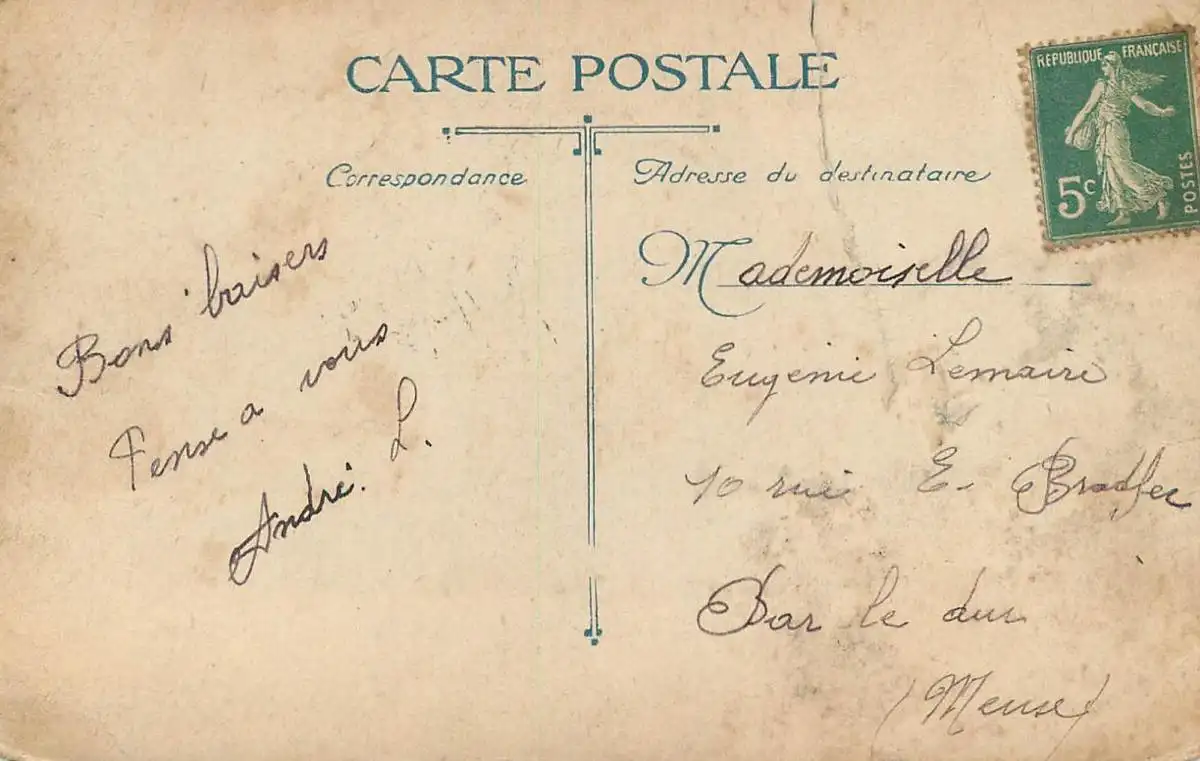 CARTE POSTALE
Correspondance
Bons baisers
Pense a vous
André. L.
Adresse du destinataire
Mademoiselle
Eugénie Lemaire
10 rue E. Bradfer
Bar le duc
(Meuse)
REPUBLIQUE FRANÇAISE
5c
POSTES